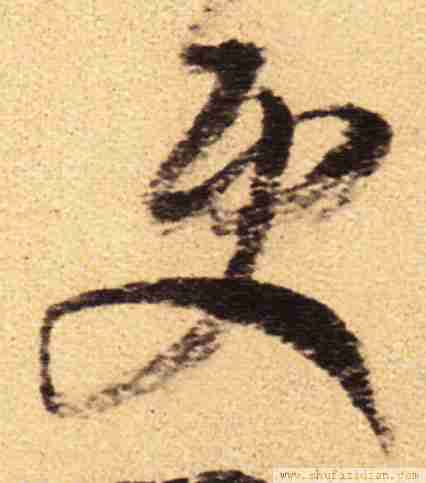 更
www.shufazidian.com